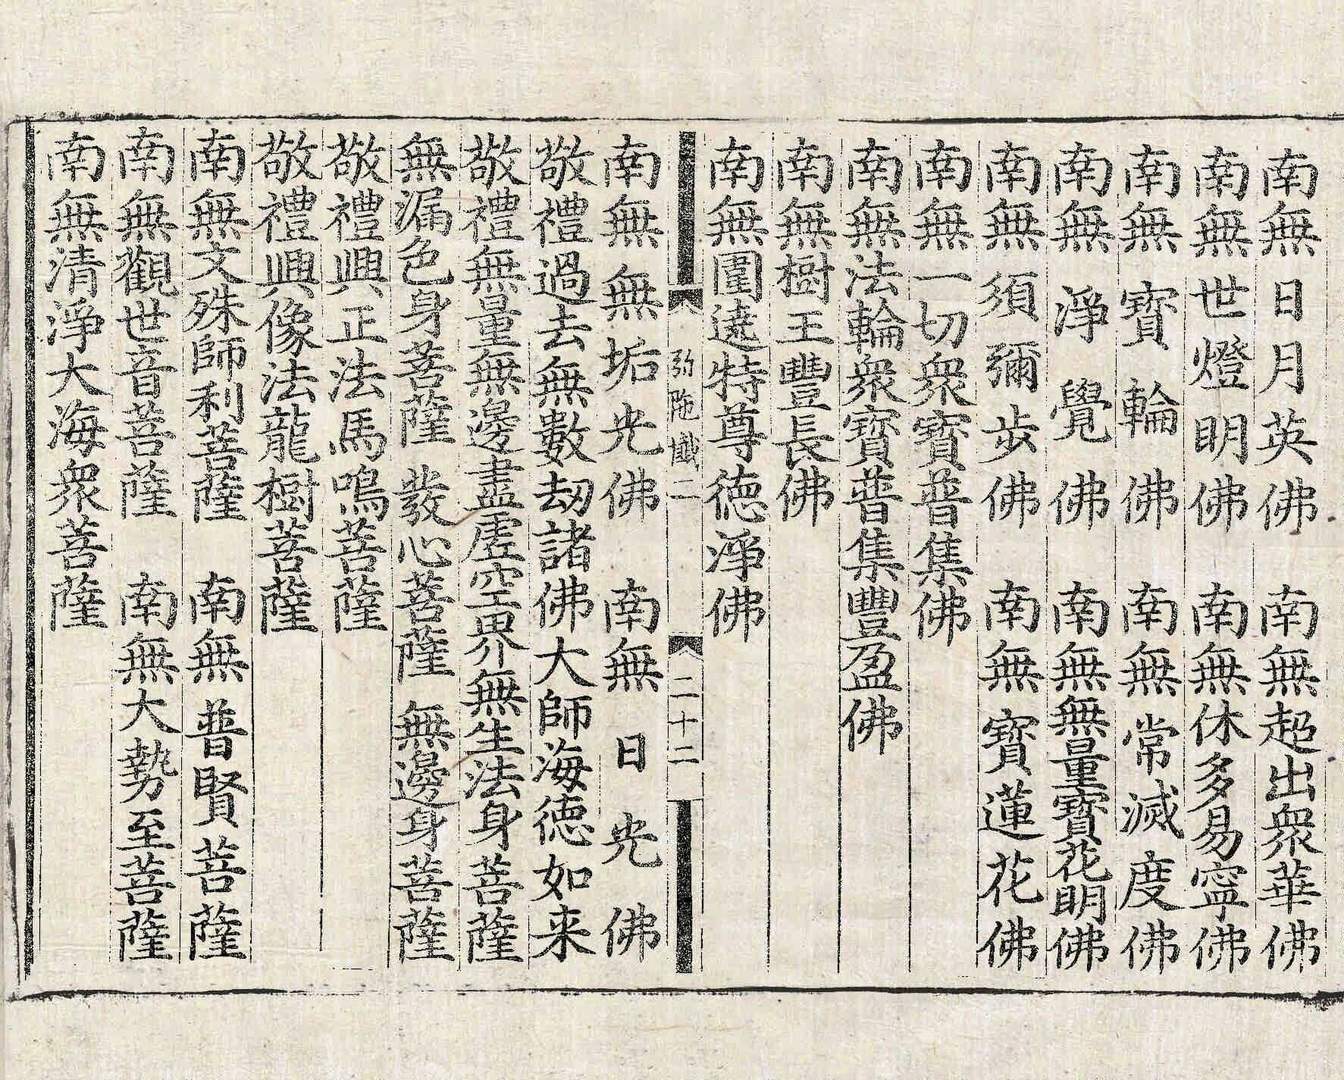 南無日月英佛　南無超出衆華佛
南無世燈明佛　南無休多易寧佛
南無寶輪佛　南無常滅度佛
南無淨覺佛　南無無量寶花明佛
南無須彌步佛　南無寶蓮花佛
南無一切衆寶普集佛
南無法輪衆寶普集豐盈佛
南無樹王豐長佛
南無圍遶特尊德淨佛
弥陁懺二　二十二
南無無垢光佛　南無日光佛
敬禮過去無數劫諸佛大師海德如来
敬禮無量無邊盡虛空界無生法身菩薩
無漏色身菩薩　發心菩薩　無邊身菩薩
敬禮興正法馬鳴菩薩
敬禮興像法龍樹菩薩
南無文殊師利菩薩　南無普賢菩薩
南無觀世音菩薩　南無大勢至菩薩
南無清淨大海衆菩薩